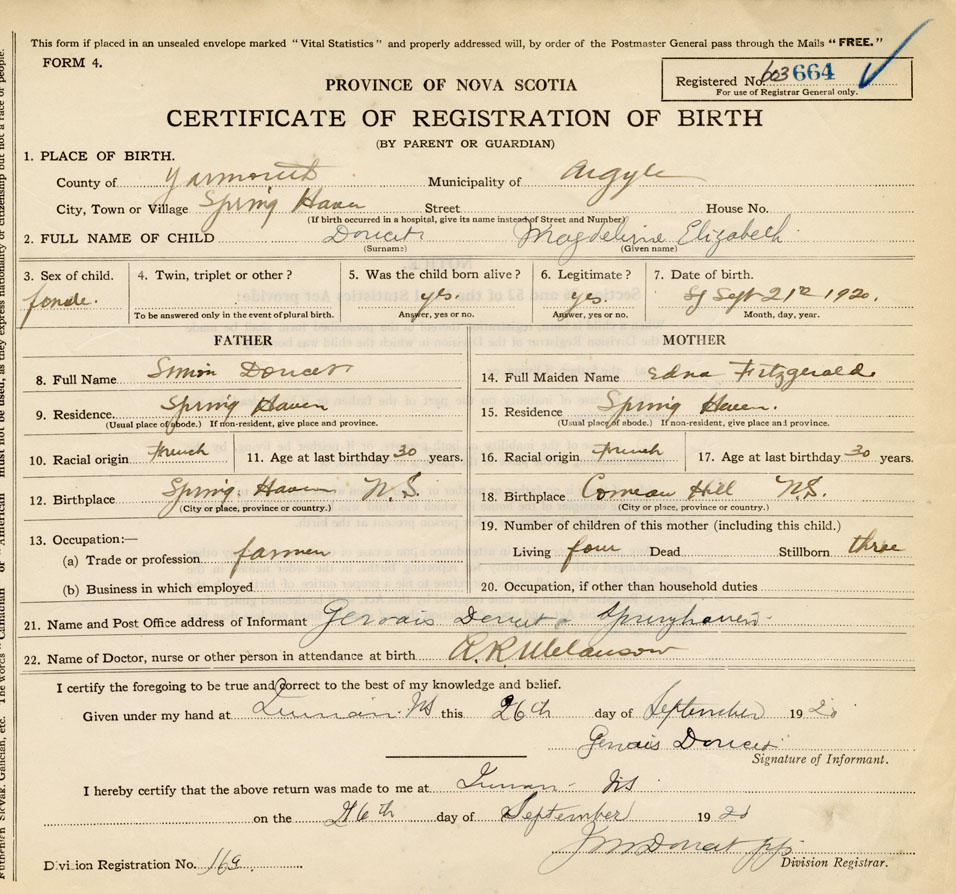 This form if placed in an unsealed envelope marked "Vital Statistics" and properly addressed will, by order of the Postmaster General pass through the Mails "FREE."
FORM 4.
Registered No. 603 664
For use of Registrar General only.
PROVINCE OF NOVA SCOTIA
CERTIFICATE OF REGISTRATION OF BIRTH
(BY PARENT OR GUARDIAN)
1. PLACE OF BIRTH.
County of Yarmouth Municipality of Argyle
City, Town or Village Spring Haven Street House No.
(If birth occurred in a hospital, give its name instead of Street and Number)
2. FULL NAME OF CHILD Doucet Magdeline Elizabeth
(Surname) (Given name)
3. Sex of child. 4. Twin, triplet or other? 5. Was the child born alive? 6. Legitimate? 7. Date of birth.
yes. yes. Sept 21 1920.
To be answered only in the event of plural birth. Answer, yes or no. Answer, yes or no. Month, day, year.
FATHER MOTHER
8. Full Name Simon Doucet
14. Full Maiden Name Edna Fitzgerald
9. Residence. Spring Haven
15. Residence Spring Haven.
(Usual place of abode.) If non-resident, give place and province.
(Usual place of abode.) If non-resident, give place and province.
10. Racial origin French 11. Age at last birthday 30 years.
16. Racial origin French 17. Age at last birthday 30 years.
12. Birthplace Spring Haven N.S.
(City or place, province or country.)
18. Birthplace Comeau Hill N.S.
(City or place, province or country.)
13. Occupation:—
(a) Trade or profession farmer
(b) Business in which employed
19. Number of children of this mother (including this child.)
Living four Dead Stillborn three
20. Occupation, if other than household duties
21. Name and Post Office address of Informant Gervais Doucet Springhaven
22. Name of Doctor, nurse or other person in attendance at birth A.R. Melanson
I certify the foregoing to be true and correct to the best of my knowledge and belief.
Given under my hand at NS this 26th day of September 1920
Gervais Doucet
Signature of Informant.
I hereby certify that the above return was made to me at NS
on the 26th day of September 1920
Doucet
Division Registrar.
Division Registration No. 169